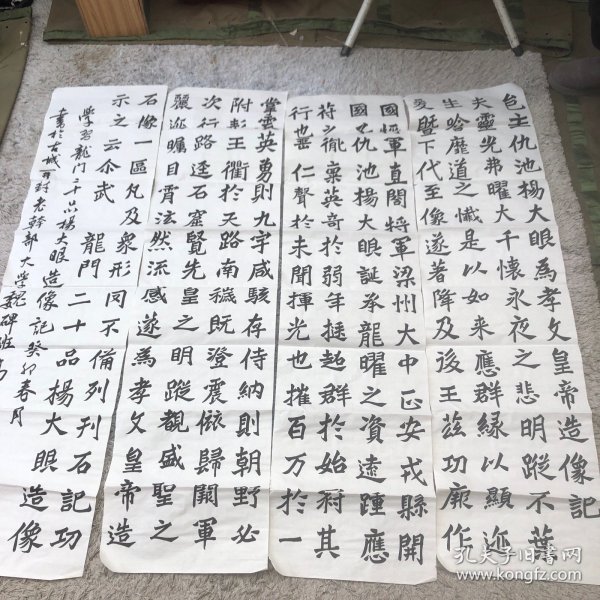 邑主仇池楊大眼為孝文皇帝造像記
夫靈光弗曜大千懷永夜之悲明蹤不葉
生唅靡道之懺是以如來應群緣以顯迹
爰暨下代至像遂著降及後王茲功厥作
國將軍直閤將軍梁州大中正安戎縣開
國子仇池楊大眼誕承龍曜之資遠踵應
符之胤稟英奇於弱年挺超群於始冠其
行也垂仁聲於未聞揮光也摧百万於一
掌震英勇則九宇咸駭存侍納則朝野必
附王衢於天路南穢既澄震旅歸闕軍
次行路逕石窟覽先皇之明蹤覩盛聖之
麗迹矚目霄泫然流感遂為孝文皇帝造
石像一區凡及衆形罔不備列刊石記功
示之云尒武 龍門二十品楊大眼造像
學習龍門二十品楊大眼造像記癸卯春月
書於古城老幹部大學魏碑班
孔夫子旧书网
www.kongfz.com